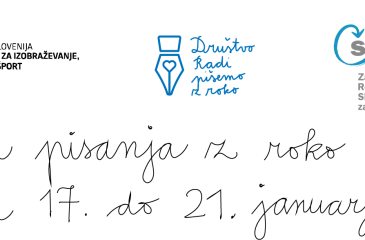 LOVENIJA
ZA IZOBRAŽEVANJE,
ŠPORT
Društvo
Radi
pišemo
z roko
pisanja z roko
17. do 21. januar